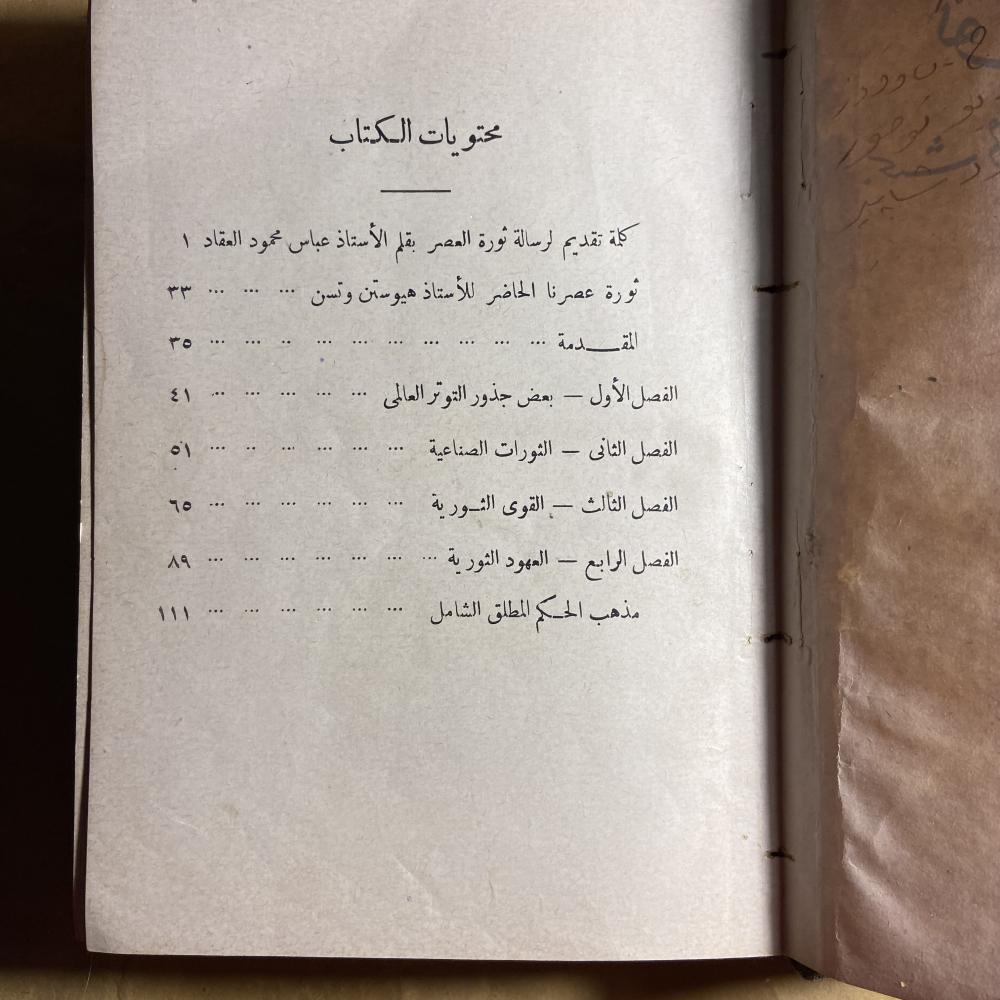 محتويات الكتاب
كلمة تقديم لرسالة ثورة العصر بقلم الأستاذ عباس محمود العقاد ١
ثورة عصرنا الحاضر للأستاذ هيوستن وتسن ... ... ... ٣٣
المقدمة ... ... ... ... ... ... ... .. ... ... ٣٥
الفصل الأول — بعض جذور التوتر العالمى ... ... ... ... ... ٤١
الفصل الثانى — الثورات الصناعية ... ... ... ... .. ... ٥١
الفصل الثالث — القوى الثورية ... ... ... ... ... ... ٦٥
الفصل الرابع — العهود الثورية ... ... ... ... ... ... ... ٨٩
مذهب الحكم المطلق الشامل ... ... ... ... .. ... ١١١